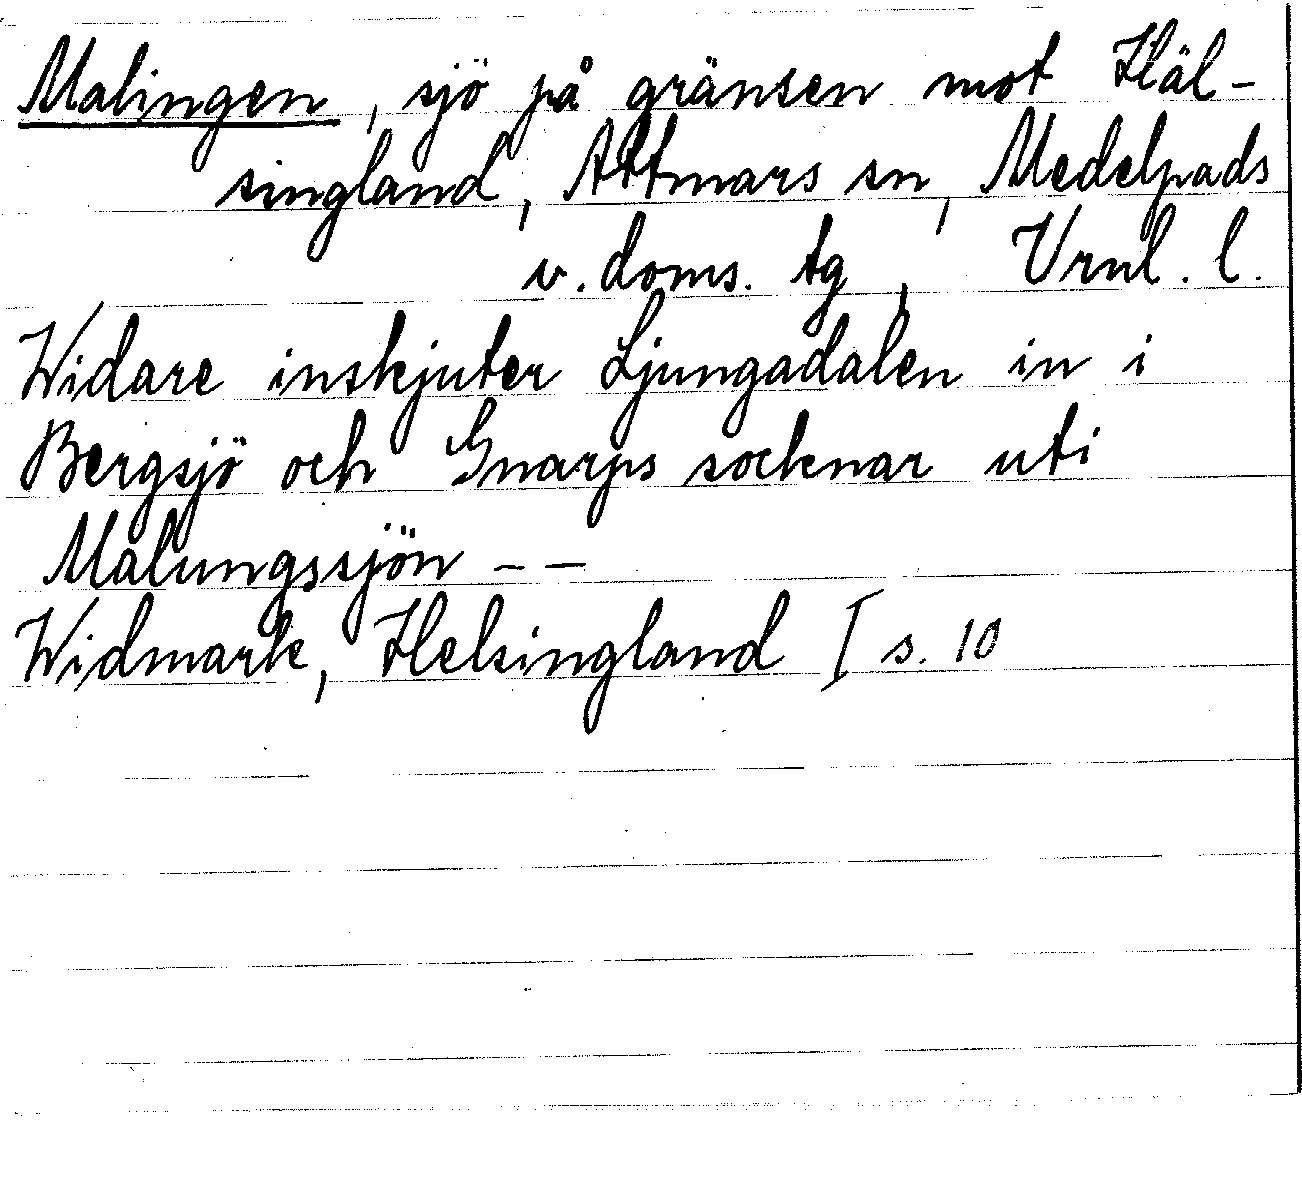 Malingen, sjö på gränsen mot Häl-
singland, Attmars sn, Medelpads
v. doms. tg, Vrnl. l.
Widare inskjuter Ljungadalen in i
Bergsjö och Gnarps socknar uti
Malungssjön - -
Widmark, Helsingland I s. 10